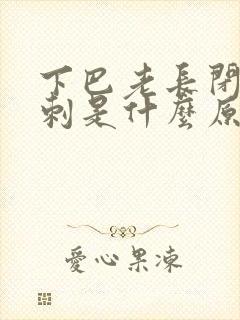 下巴老長閉
刺是什麼原
愛心果凍